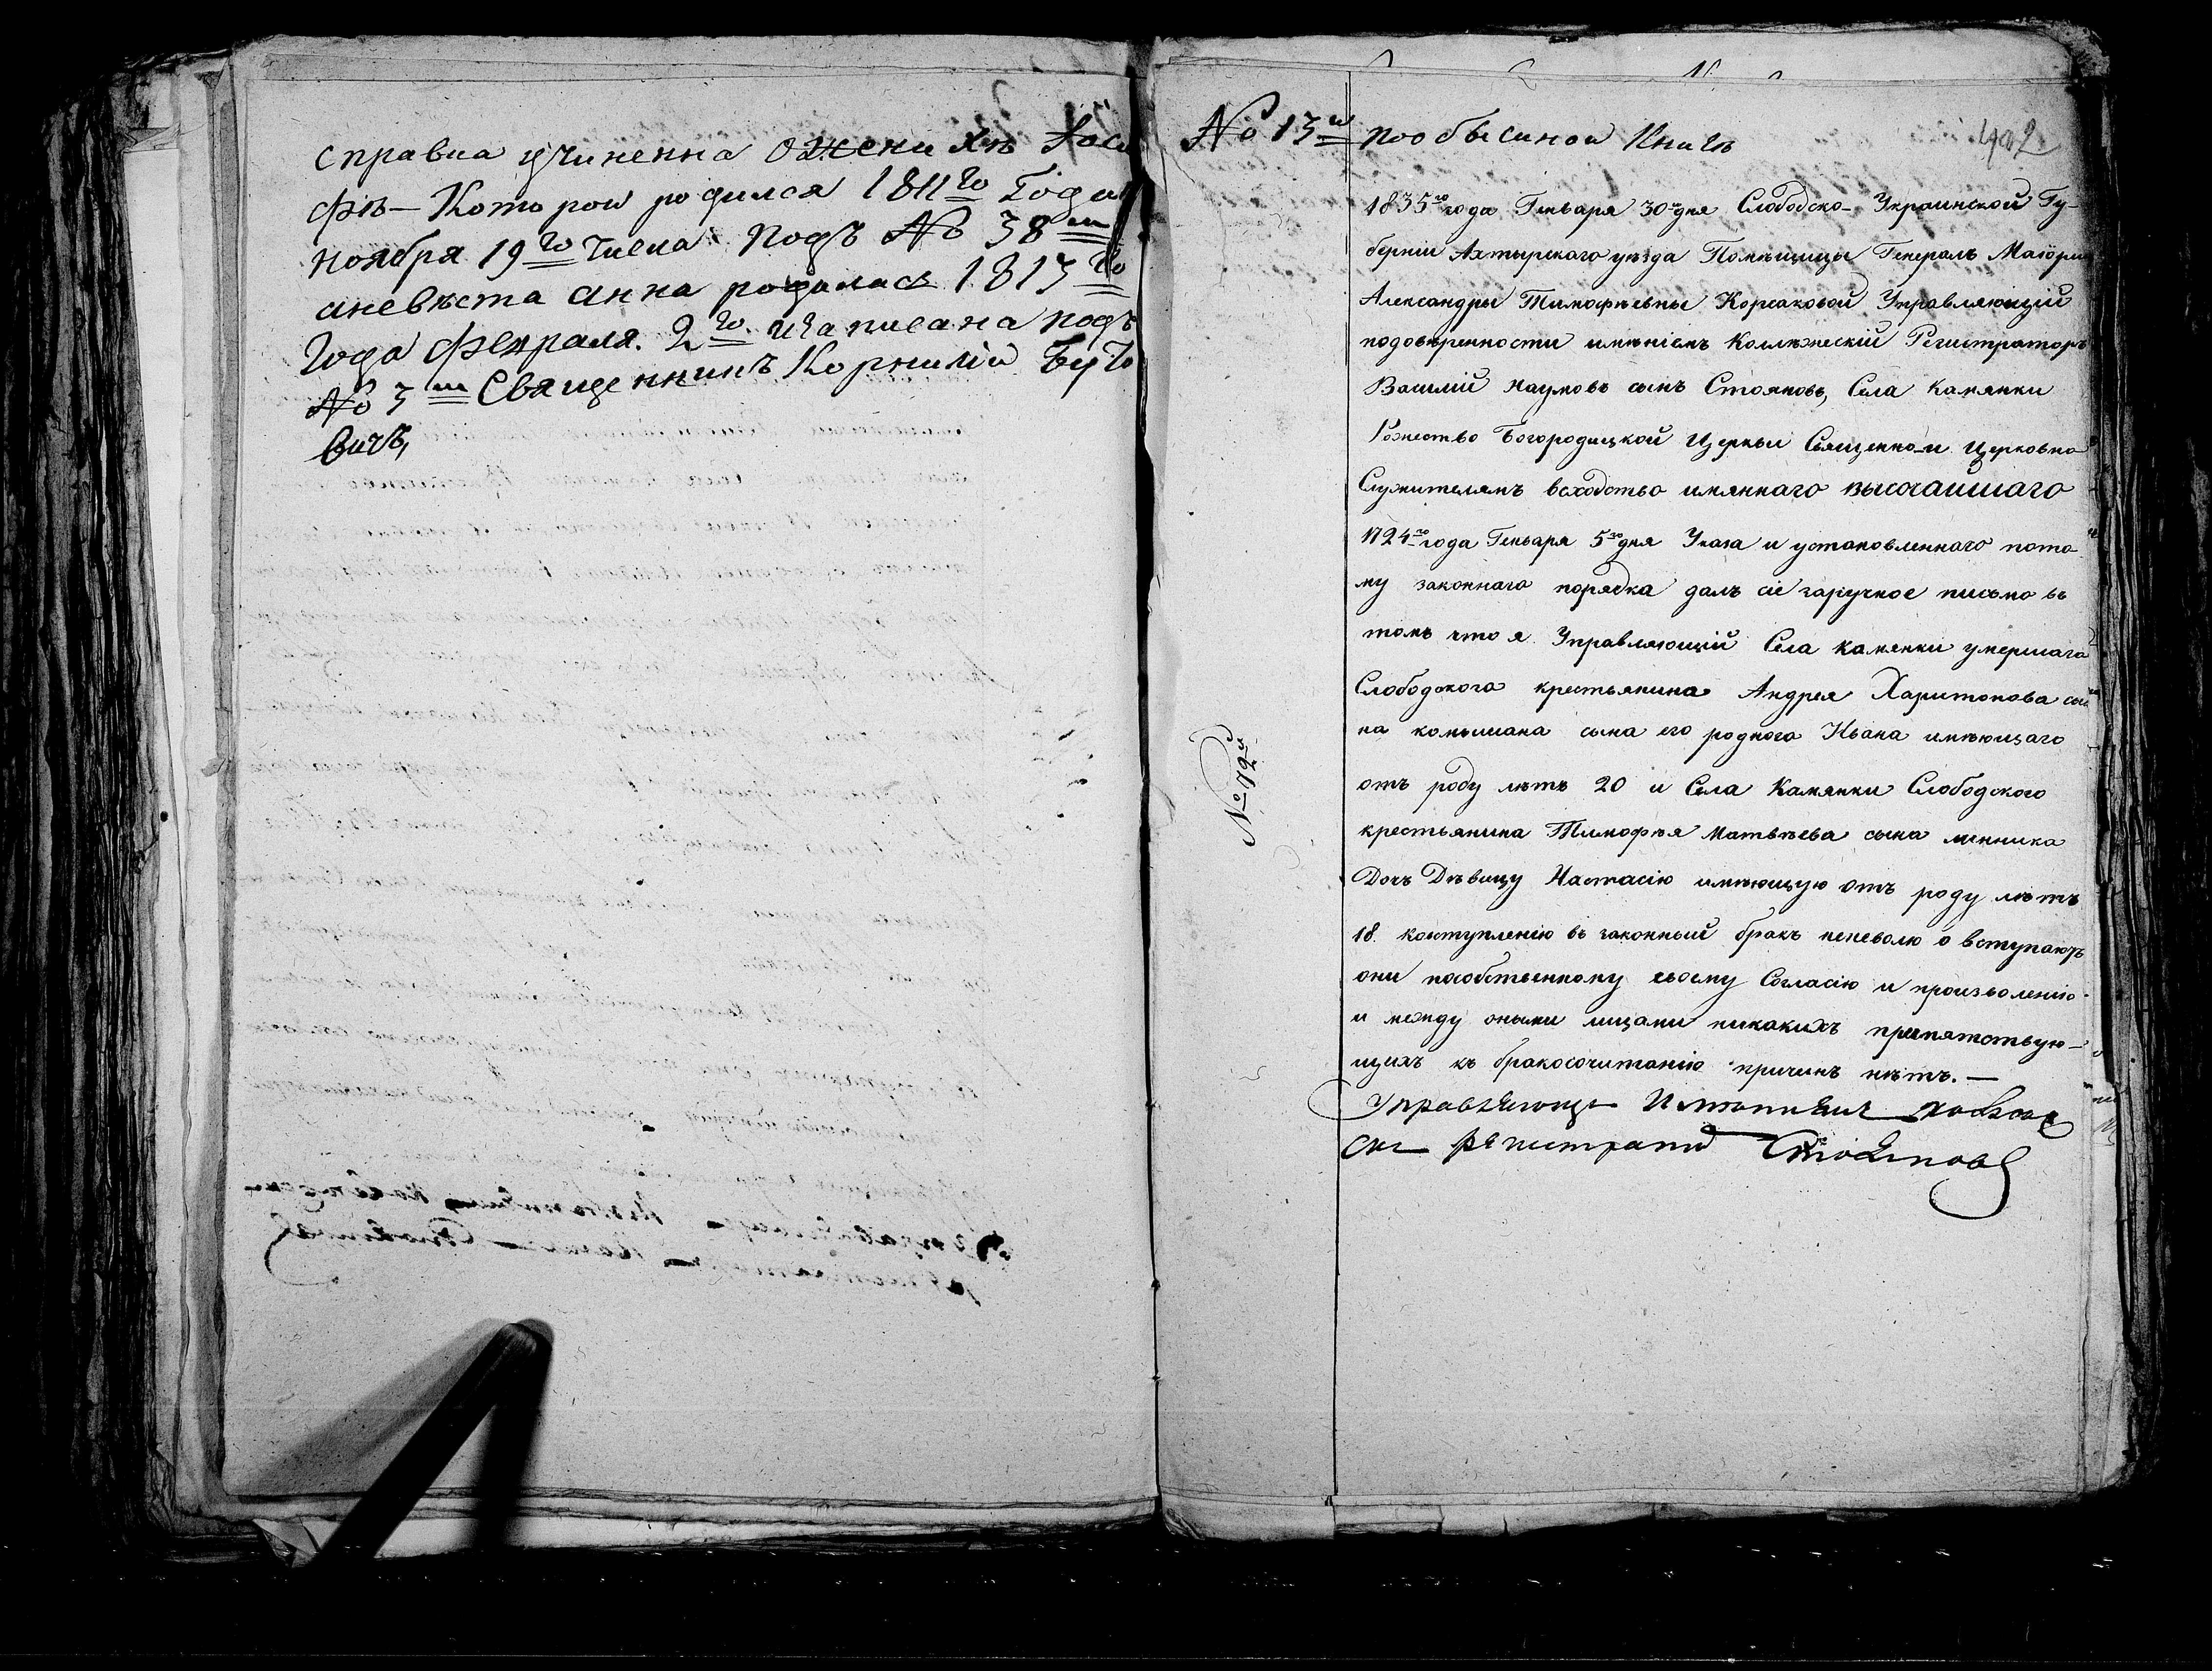 справка учиненна оженихѣ Іоси
фѣ — Которои родился 1811го Года
ноября 19го числа подъ № 38м
аневѣста анна родилась 1813го
Года февраля 2го изаписана подъ
№ 3м Священникъ Корнилій Буто
вичъ,
№ 13й
пообыскной Книгѣ
402
1835го года Генваря 30го дня Слободско-Украинской Гу-
берніи Ахтырскаго уѣзда Помѣщицы Генералъ Маіорши
Александры Тимофѣевны Корсаковой Управляющій
подовѣренности имѣніемъ Коллежскій Регистраторъ
Василій Наумовъ сынъ Стояновъ, Села Камянки
Рожество Богородицкой Церкви Священно-и Церковно
Служителямъ всходство имяннаго высочаишаго
1724го года Генваря 5го дня Указа и установленнаго пото
му законнаго порядка далъ сіе заручное письмо въ
томъ что я Управляющій Села камянки умершаго
Слободского крестьянина Андрея Харитонова сы
на сына его роднаго Ивана имѣющаго
отъ роду лѣтъ 20 и Села Камянки Слободского
крестьянина Тимофѣя Матвѣева сына
Дочь Дѣвицу Настасію имѣющую отъ роду лѣтъ
18. ковступленію въ законный бракъ неневолю а вступаютъ
они пособственному своему Согласію и произволенію
и между оными лицами никакихъ препятствую-
щихъ къ бракосочитанію причинъ нѣтъ. —
Управляющ
Стояновъ
№ 12й